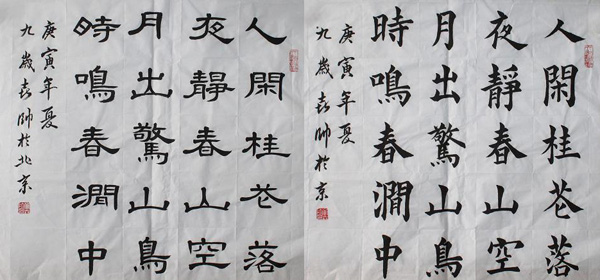 人閑桂花落
夜靜春山空
月出驚山鳥
時鳴春澗中
庚寅年夏
九歲喜帥於北京
人閑桂花落
夜靜春山空
月出驚山鳥
時鳴春澗中
庚寅年夏
九歲喜帥於京